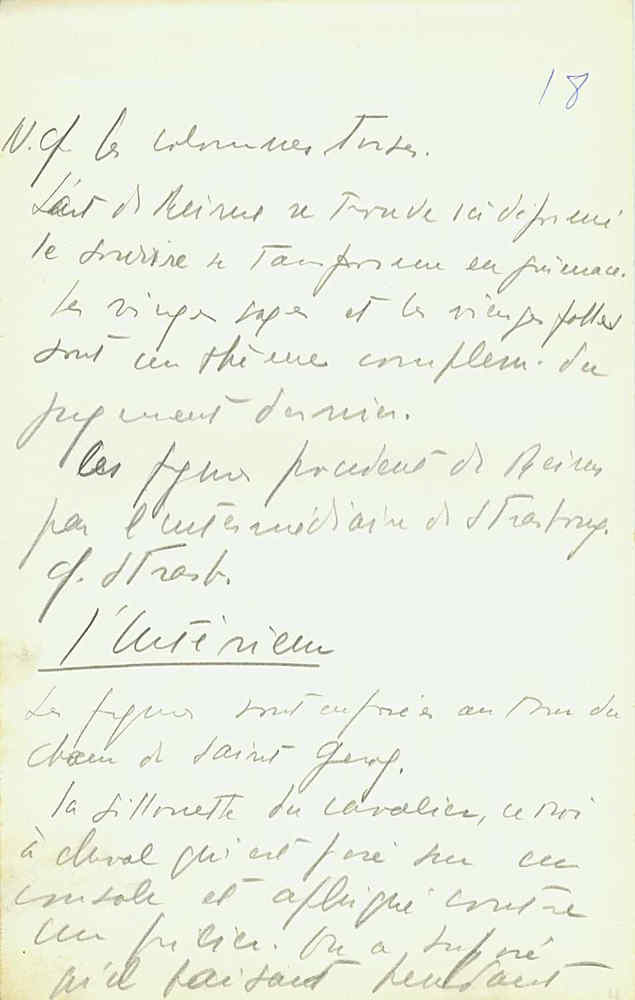 18
N. cf les colonnes torses.
L'art de Reims se trouve ici déformé
le sourire se transforme en grimace.
Les vierges sages et les vierges folles
sont un thème complém. du
jugement dernier.
les figures procèdent de Reims
par l'intermédiaire de Strasbourg.
cf. Strasb.
l'Intérieur
Les figures sont autour du
chœur de Saint Georg.
la sillouette du cavalier, ce roi
à cheval qui est posé sur un
console et appliqué contre
un pilier. On a supposé
qu'il faisait pendant